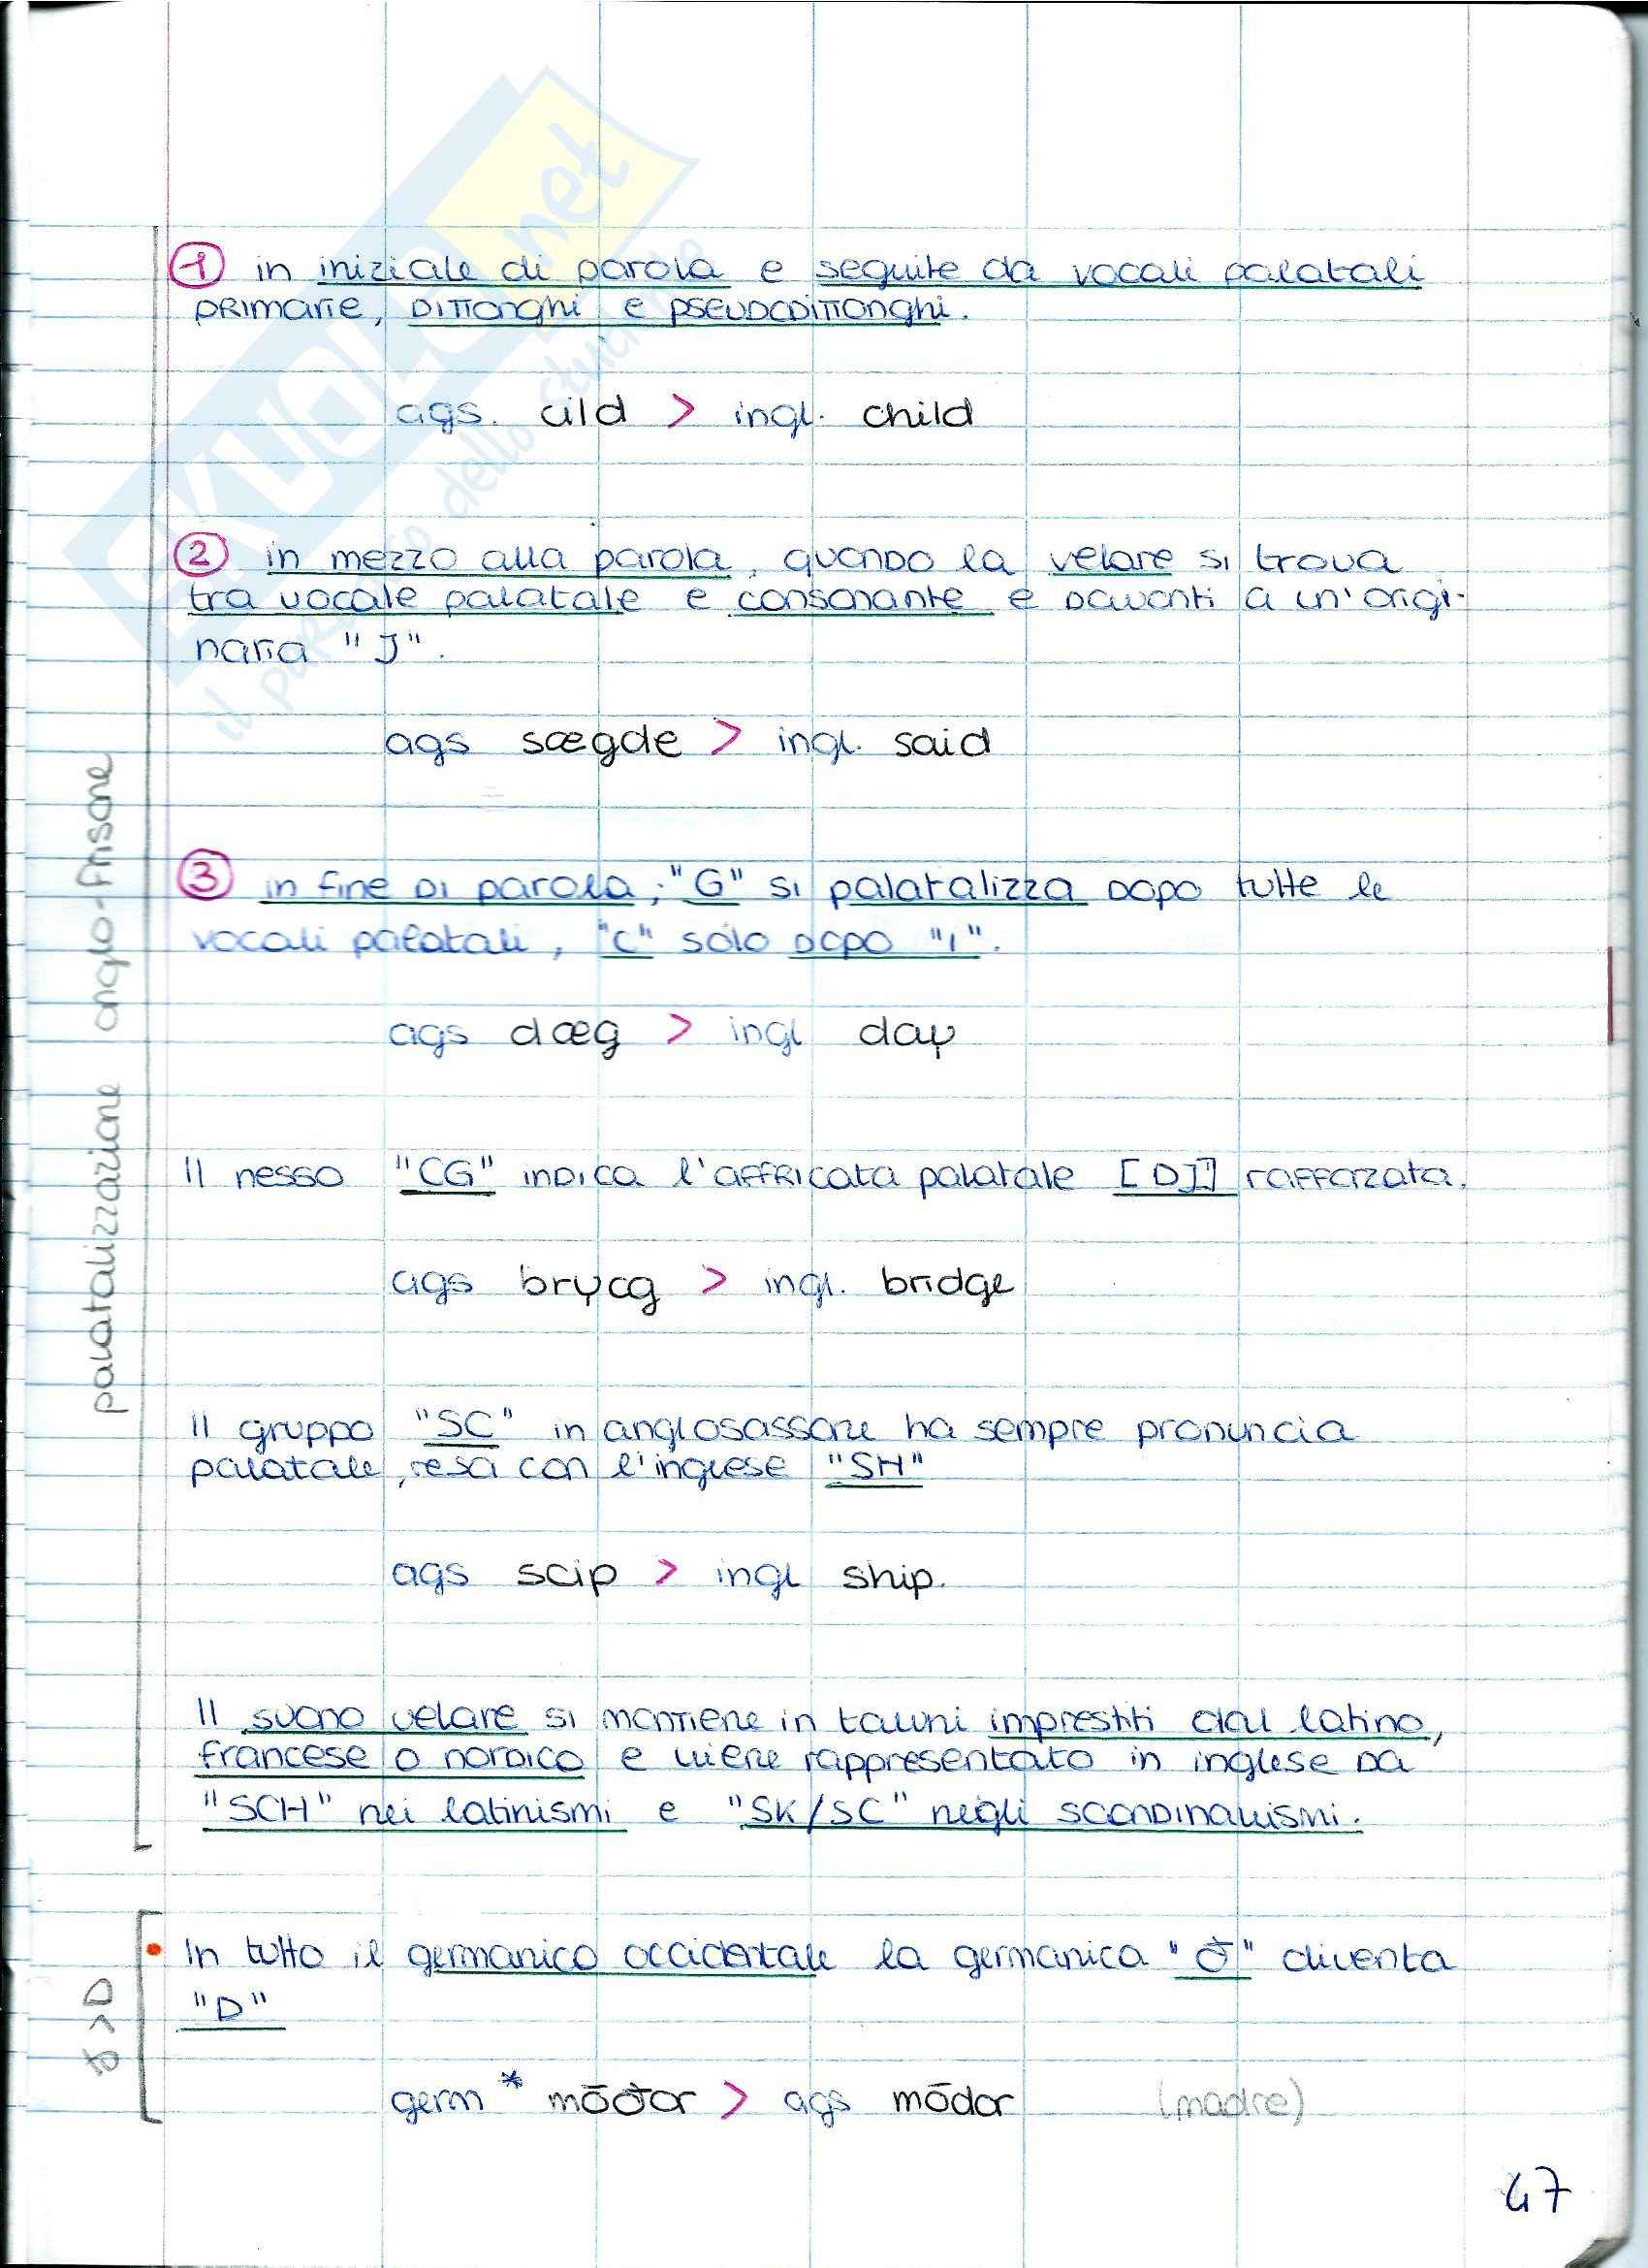 ① in iniziale di parola e seguite da vocali palatali
primarie, dittonghi e pseudodittonghi.
ags. cild > ingl. child
② in mezzo alla parola, quando la velare si trova
tra vocale palatale e consonante e davanti a un'origi-
naria "J".
ags sægde > ingl. said
③ in fine di parola, "G" si palatalizza dopo tutte le
vocali palatali, "C" solo dopo "i".
ags dæg > ingl day
Il nesso "CG" indica l'affricata palatale [DJ] rafforzata.
ags brycg > ingl. bridge
Il gruppo "SC" in anglosassone ha sempre pronuncia
palatale, resa con l'inglese "SH"
ags scip > ingl ship.
Il suono velare si mantiene in taluni imprestiti dal latino,
francese o nordico e viene rappresentato in inglese da
"SCH" nei latinismi e "SK/SC" negli scandinavismi.
palatalizzazione anglo-frisone
• In tutto il germanico occidentale la germanica "ð" diventa
"D"
ð > D
germ * mōðar > ags mōdor (madre)
47
SKUOLA.net
il paradiso dello studente